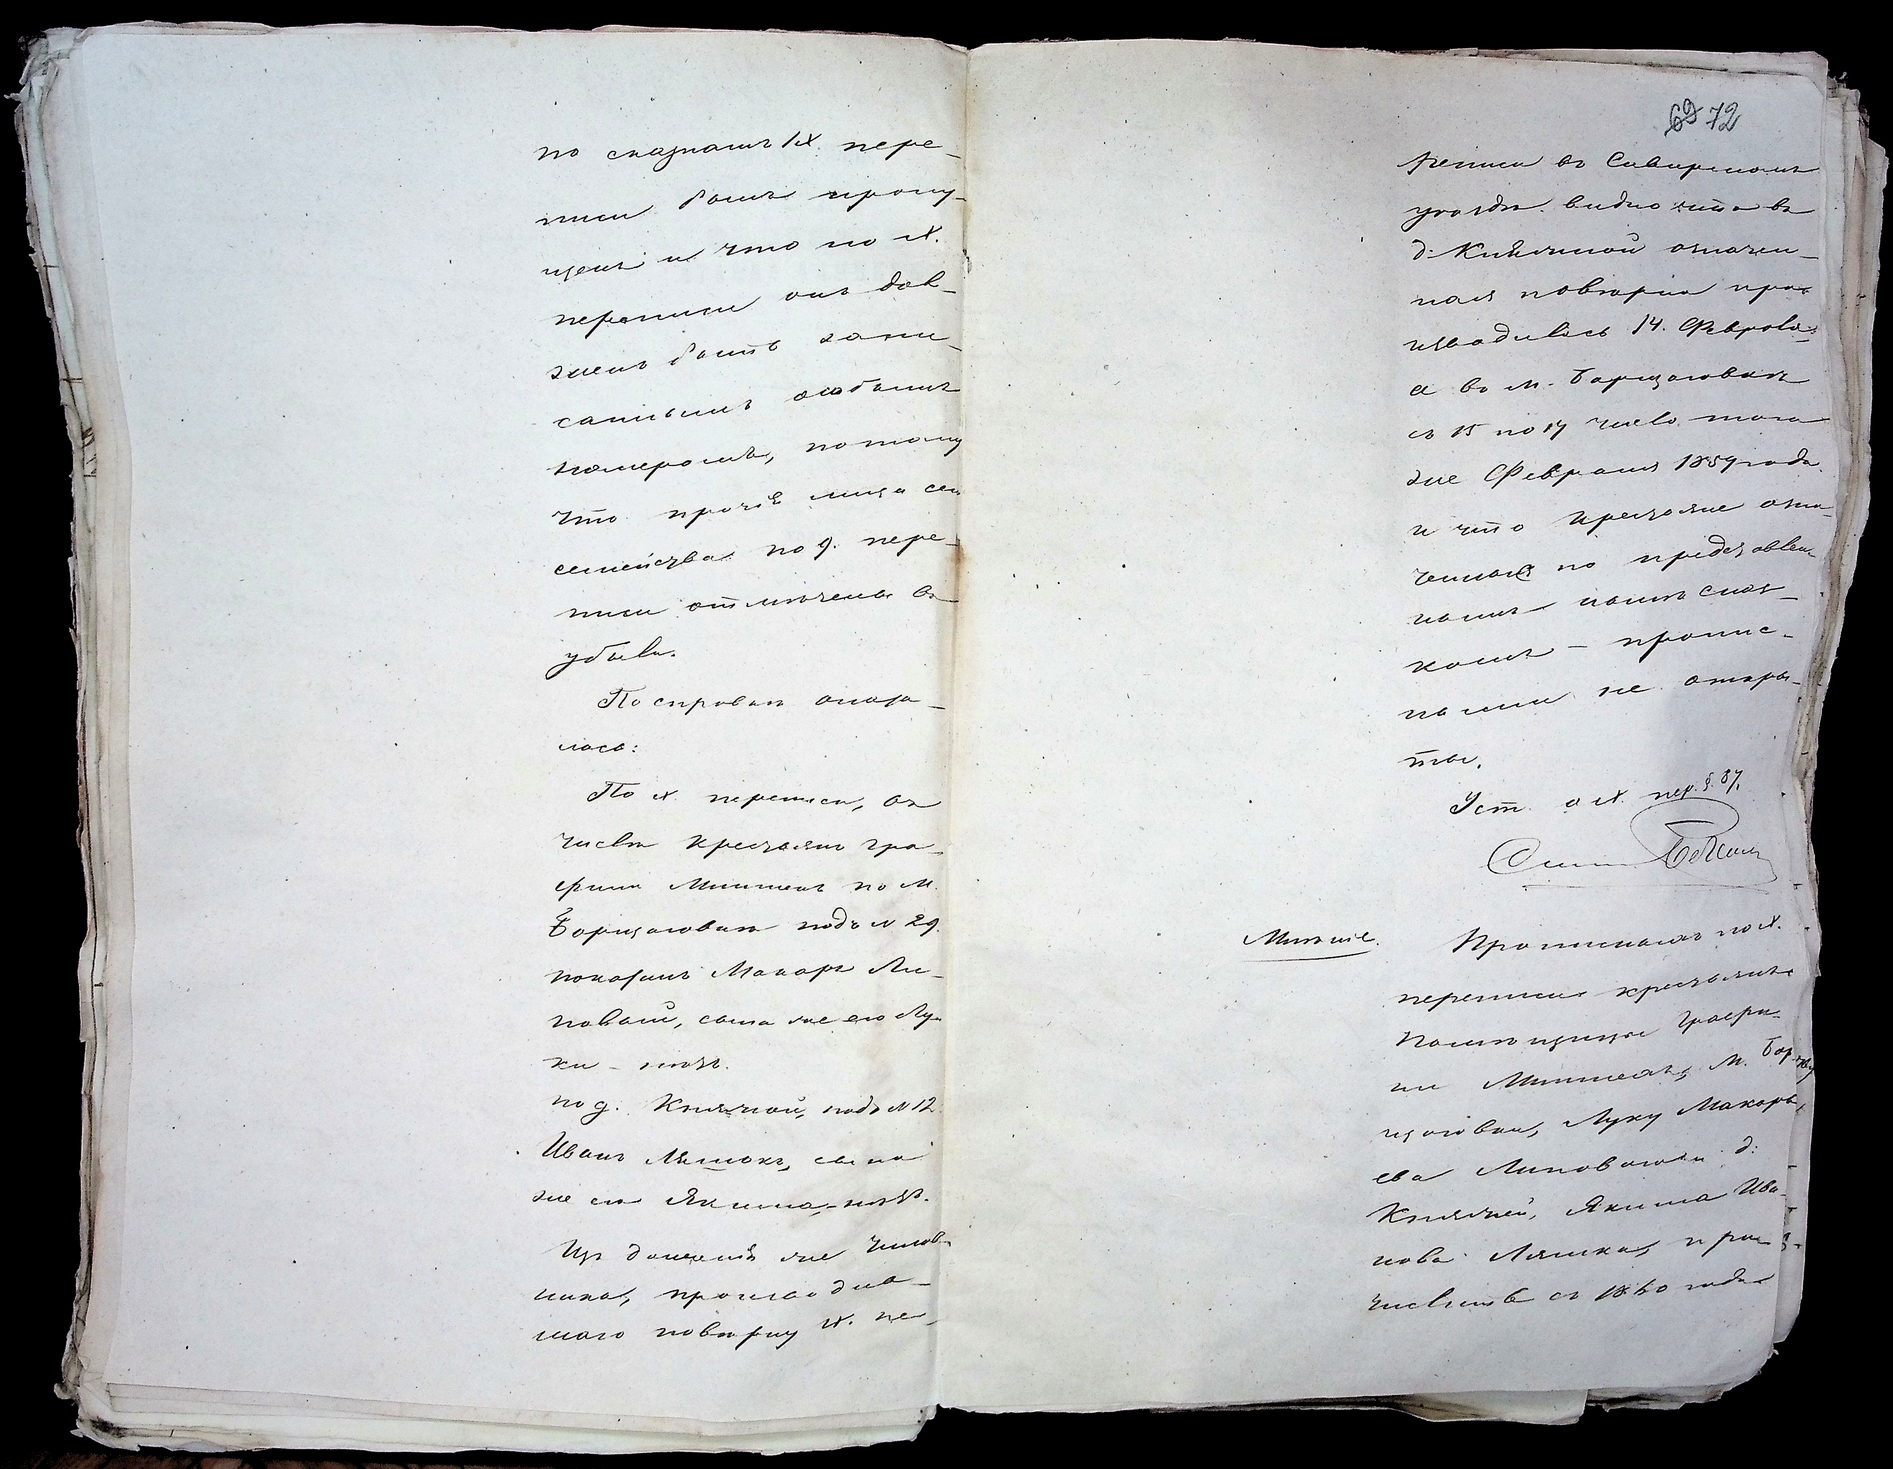 по сказкамъ IX. пере-
писи былъ пропу-
щенъ и что по X.
переписи онъ дол-
женъ быть запи-
саннымъ особымъ
номеромъ, потому
что прочія лица
семейства по 9. пере-
писи отмѣчены въ
убыли.
По справкѣ оказа-
лось:
По X. переписи, въ
числѣ крестьянъ гра-
фини Мнишекъ по м.
Борщаговкѣ подъ N 29.
показанъ Макаръ Ли-
повый, сына же его Лу-
ки - нѣтъ.
по д. Княжной, подъ N 12.
Иванъ Ляшокъ, сына
же его Якима, - нѣтъ.
Изъ донесенія же чинов-
ника, производив-
шаго повѣрку X. пе-
69 72
реписи въ Сквирскомъ
уѣздѣ. видно что въ
д. Княжной означен-
ная повѣрка про-
изводилась 14. Февраля
а въ м. Борщаговкѣ
съ 15 по 17 число того
же Февраля 1859 года.
и что крестьяне озна-
ченные по представлен-
нымъ спис-
камъ - пропис-
ными не откры-
ты.
Уст. о X. пер. §. 87.
Мнѣніе.
Прописныхъ по X.
переписи крестьянъ
Помѣщицы Графи-
ни Мнишекъ, м. Бор-
щаговки, Луку Макарь-
ева Липоваго и д:
Княжней, Якима Ива-
нова Ляшка, при-
числить съ 1860 года